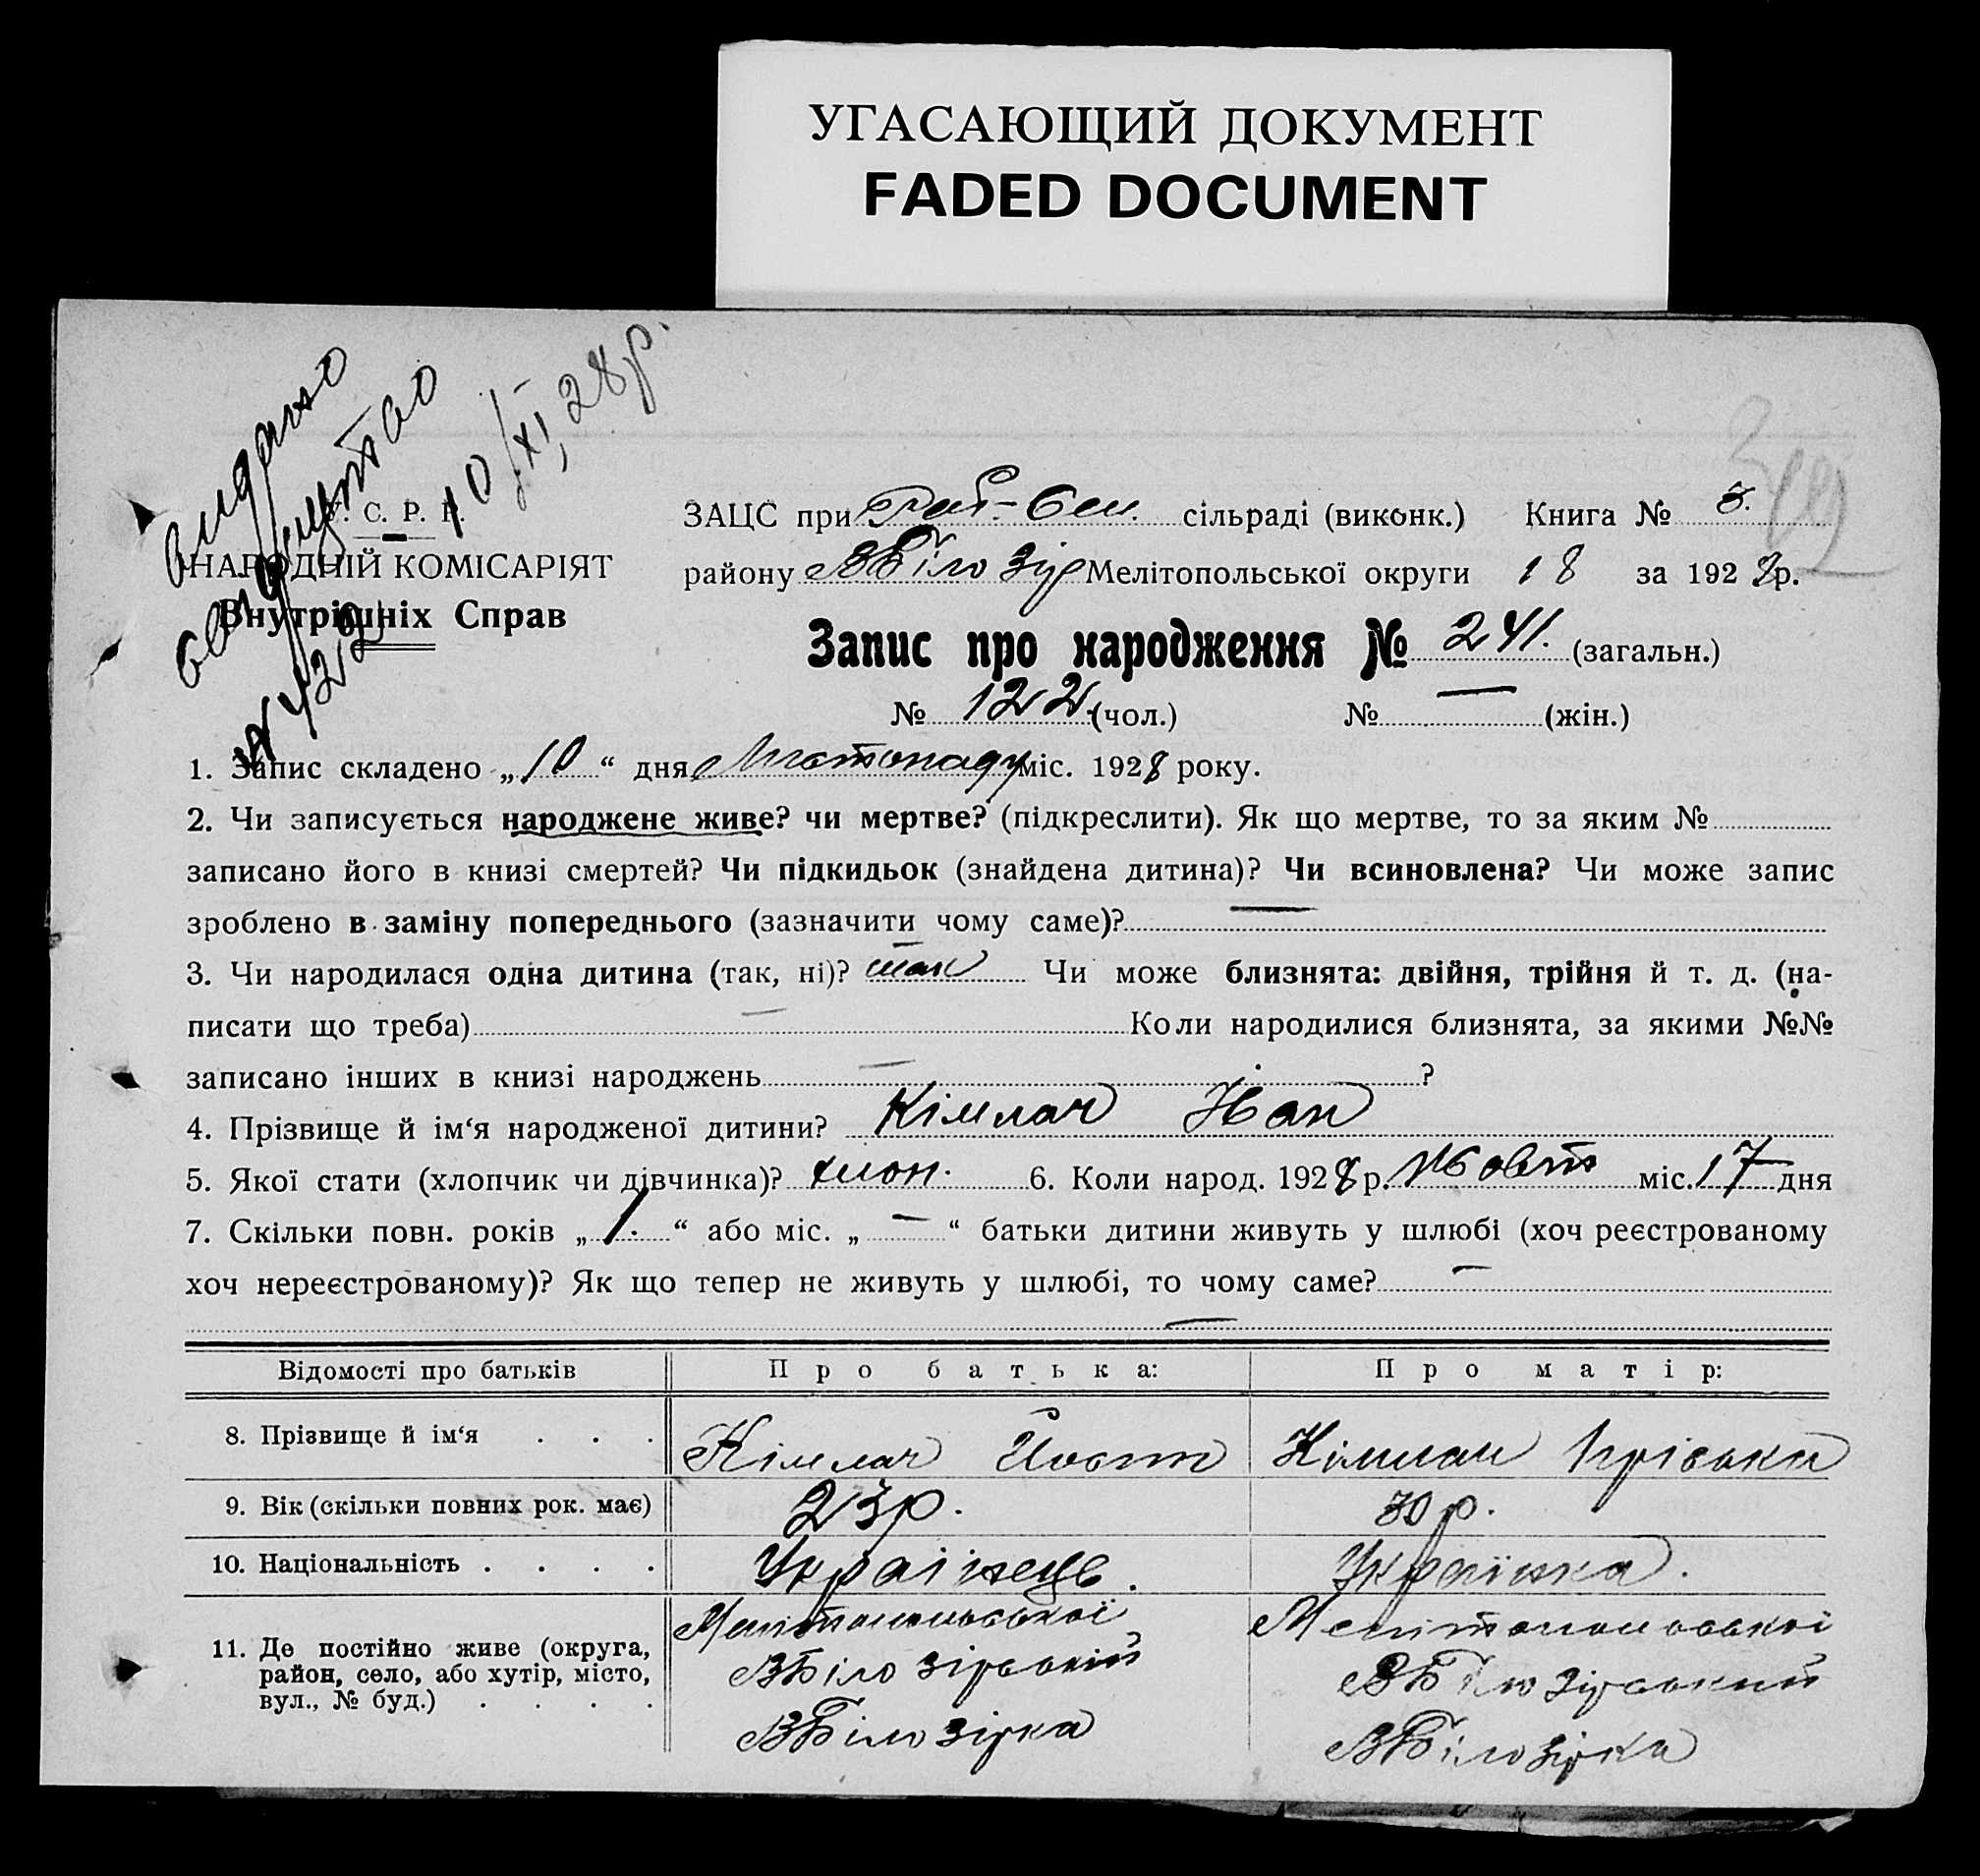 УГАСАЮЩИЙ ДОКУМЕНТ
FADED DOCUMENT
видано
10/XI, 28р.
№ 422
У. С. Р. Р.
НАРОДНІЙ КОМІСАРІЯТ
Внутрішніх Справ
ЗАЦС при сільраді (виконк.) Книга № 3.
району ВБілозір Мелітопольської округи 18 за 1928р.
Запис про народження № 241. (загальн.)
№ 122. (чол.) № — (жін.)
1. Запис складено „10“ дня Листопаду міс. 1928 року.
2. Чи записується народжене живе? чи мертве? (підкреслити). Як що мертве, то за яким №
записано його в книзі смертей? Чи підкидьок (знайдена дитина)? Чи всиновлена? Чи може запис
зроблено в заміну попереднього (зазначити чому саме)? —
3. Чи народилася одна дитина (так, ні)? так Чи може близнята: двійня, трійня й т. д. (на-
писати що треба) — Коли народилися близнята, за якими №№
записано інших в книзі народжень — ?
4. Прізвище й ім‘я народженої дитини? Кімлач Іван
5. Якої стати (хлопчик чи дівчинка)? хлоп. 6. Коли народ. 1928 р. Жовт міс. 17 дня
7. Скільки повн. років „1.“ або міс. „—“ батьки дитини живуть у шлюбі (хоч реєстрованому
хоч нереєстрованому)? Як що тепер не живуть у шлюбі, то чому саме? —
—
Відомості про батьків Про батька: Про матір:
8. Прізвище й ім‘я . . . Кімлач Йост Кімлач Пріська
9. Вік (скільки повних рок. має) 23р. 30 р.
10. Національність . . . . Українець. Українка.
11. Де постійно живе (округа, район, село, або хутір, місто, вул., № буд.) . . . .
Мелітопольської Мелітопольської
ВБілозірський ВБілозірський
ВБілозірка ВБілозірка